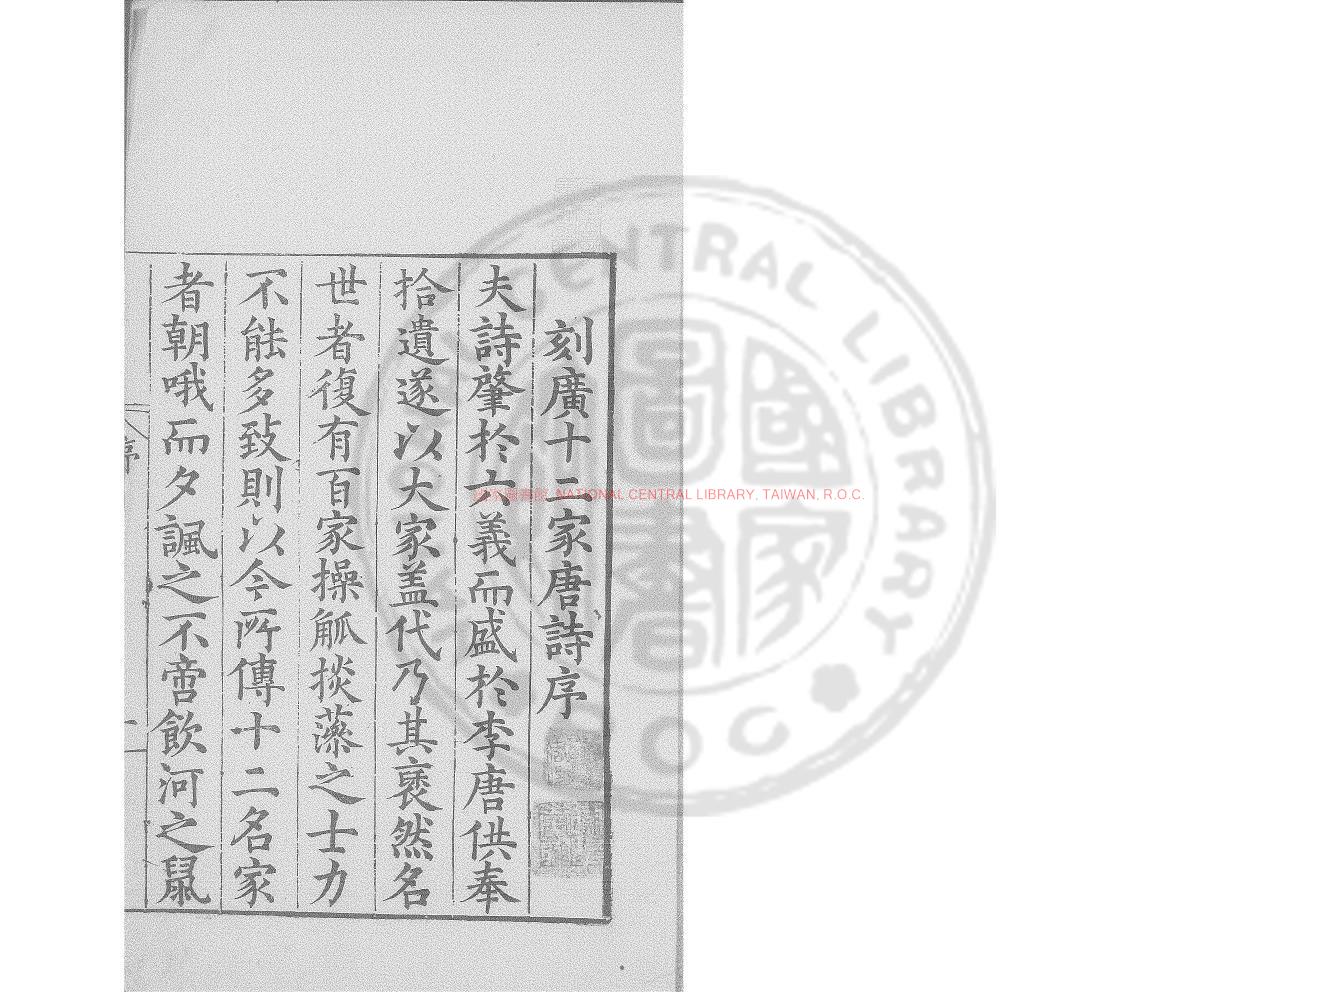 刻廣十二家唐詩序
夫詩肇於六義而盛於李唐供奉
拾遺遂以大家盖代乃其褎然名
世者復有百家操觚掞藻之士力
不能多致則以今所傳十二名家
者朝哦而夕諷之不啻飲河之鼠
序
一
NATIONAL CENTRAL LIBRARY, TAIWAN, R.O.C.
CENTRAL LIBRARY
國家圖書